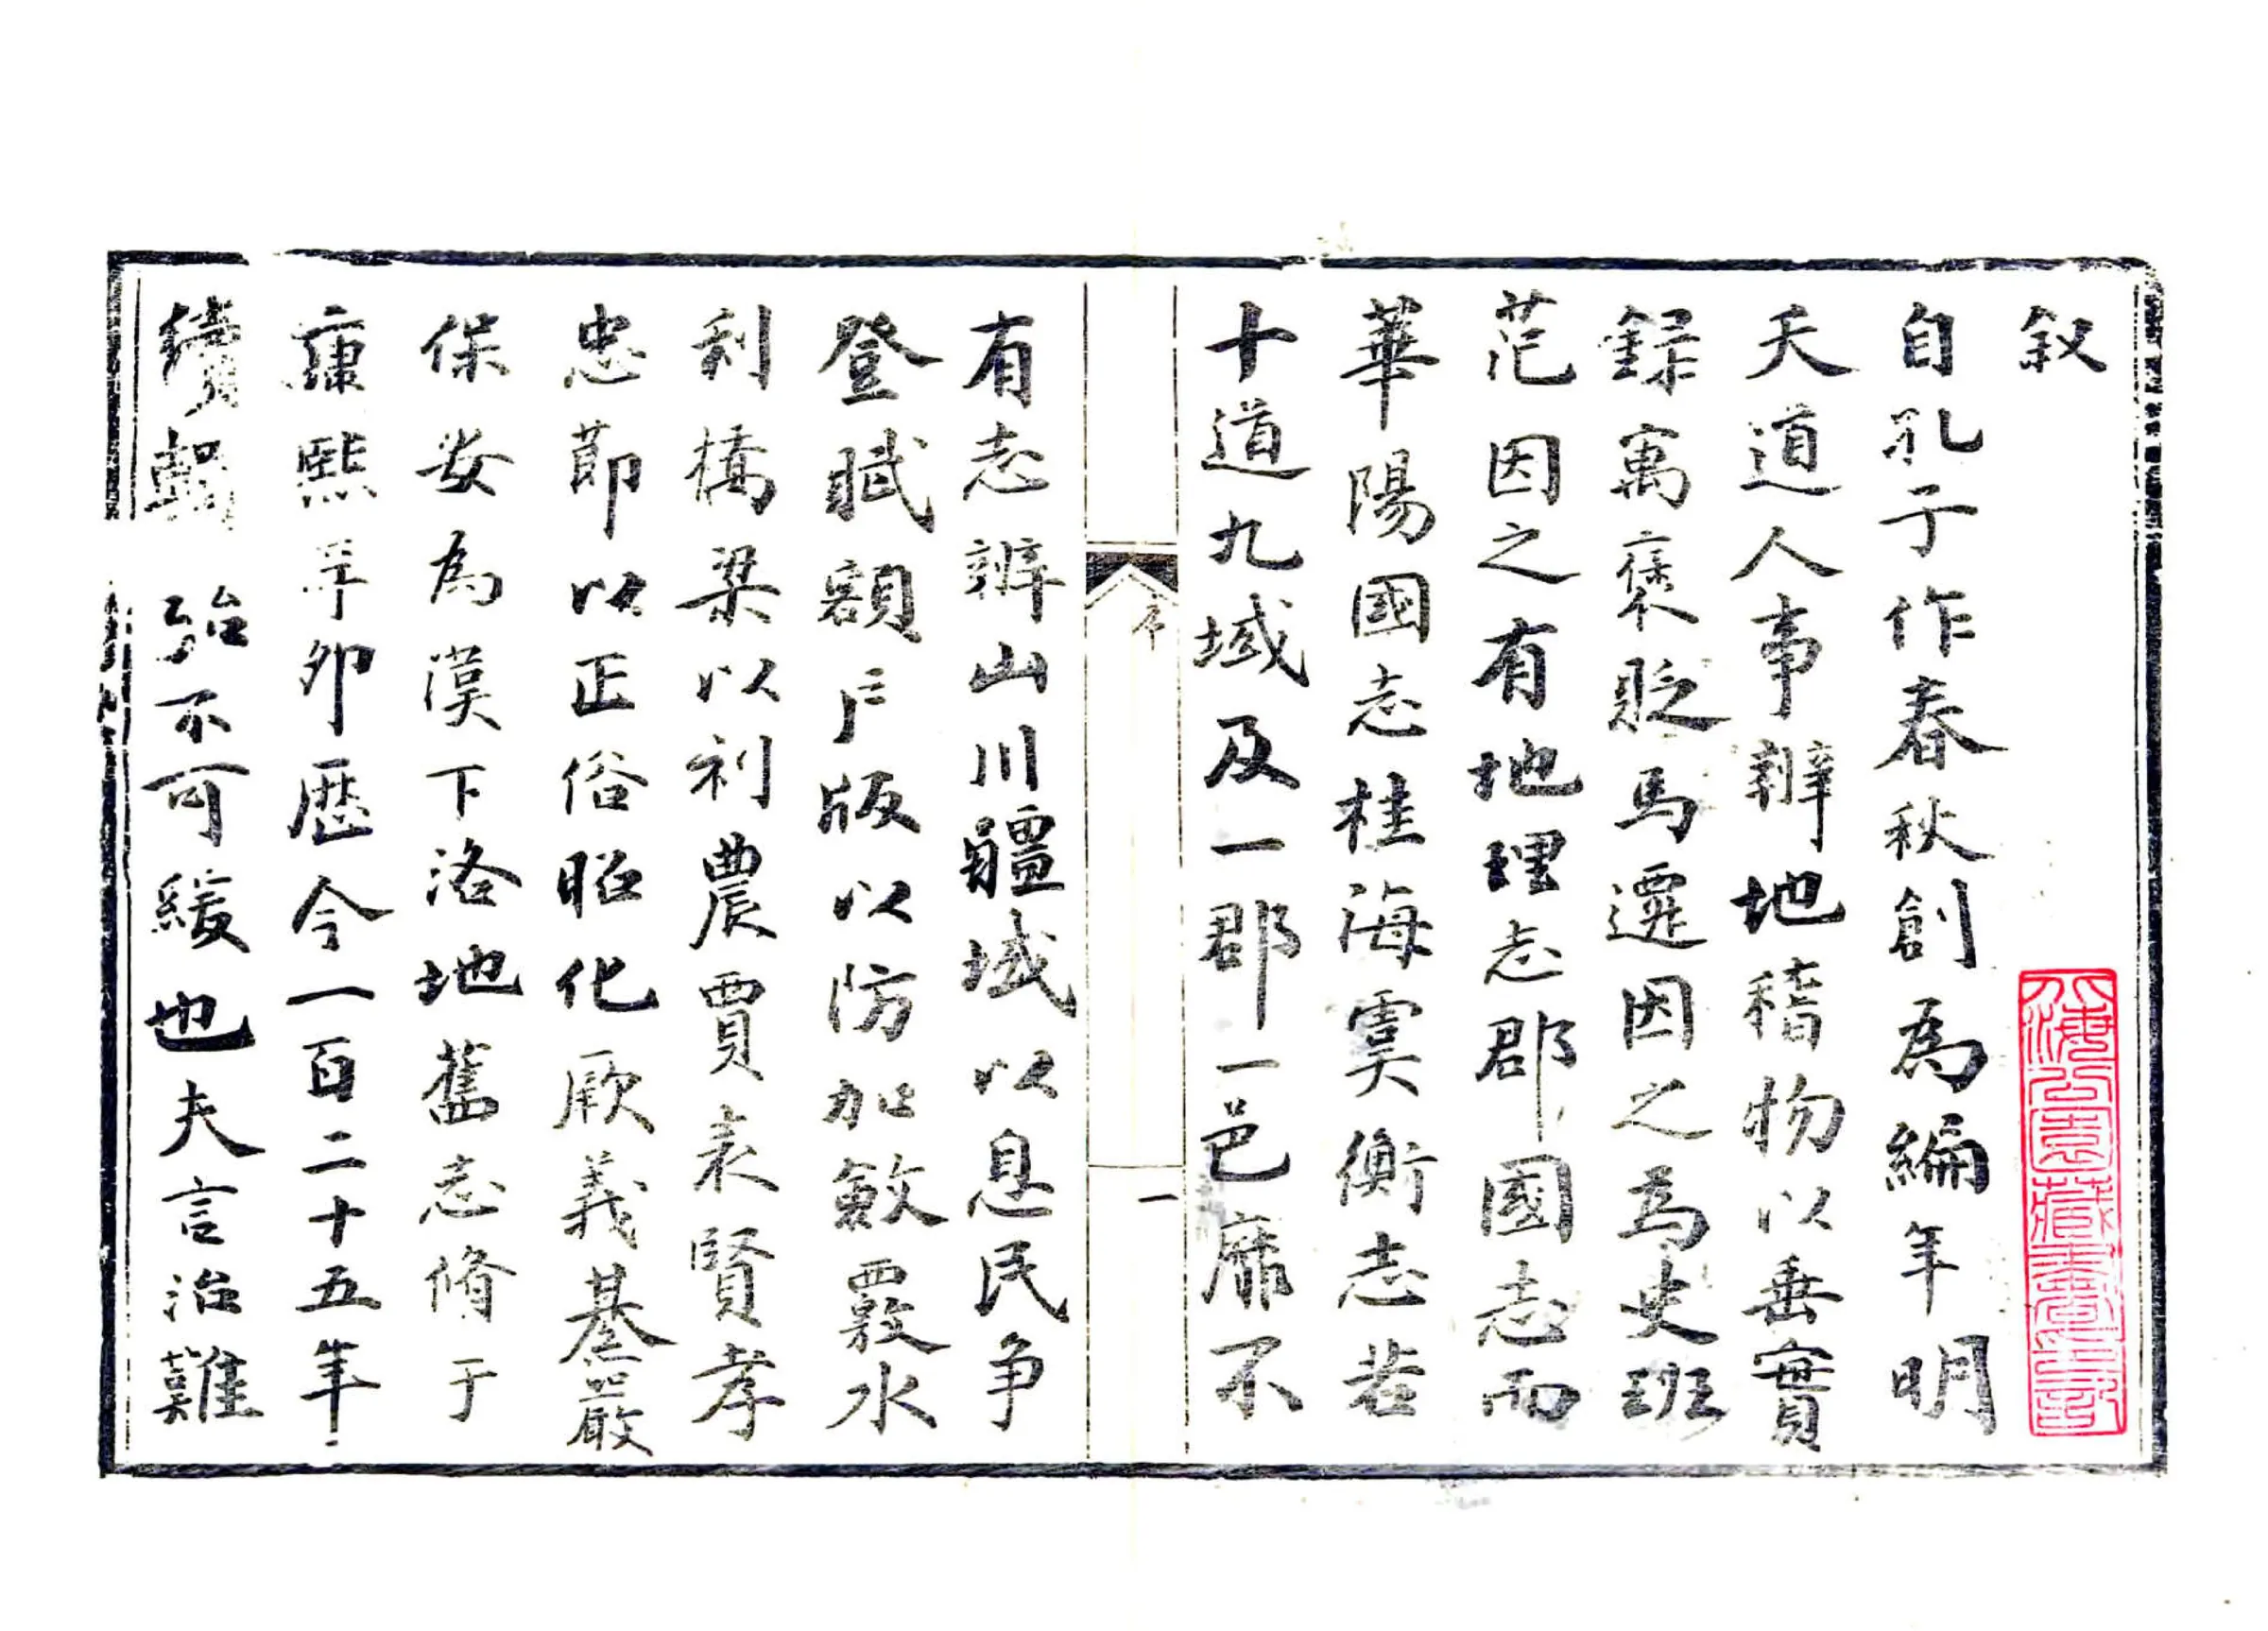 叙
自孔子作春秋創為編年明
天道人事辨地稽物以垂實
録寓褒貶馬遷因之為史班
范因之有地理志郡國志而
華陽國志桂海虞衡志若
十道九域及一郡一邑靡不
序
一
有志辨山川疆域以息民争
登賦額戶版以防加敏覈水
利橋梁以利農賈表賢孝
忠節以正俗昭化厥義綦嚴
保安為漢下洛地舊志脩于
康熙辛卯歷今一百二十五年
續輯殆不可緩也夫言治難